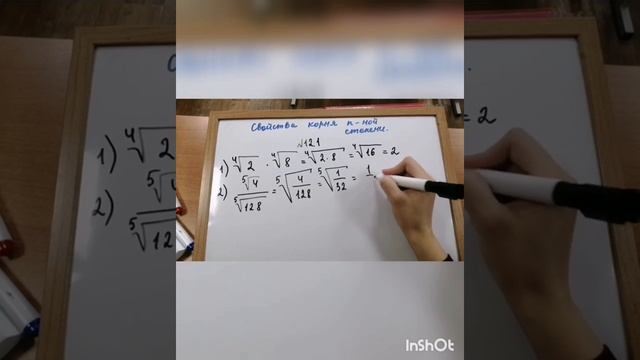 Свойства корня n-ной
степени.
№12.1
1) ⁴√2 · ⁴√8 = ⁴√(2·8) = ⁴√16 = 2
2) ⁵√4 / ⁵√128 = ⁵√(4/128) = ⁵√(1/32) = 1
InShot